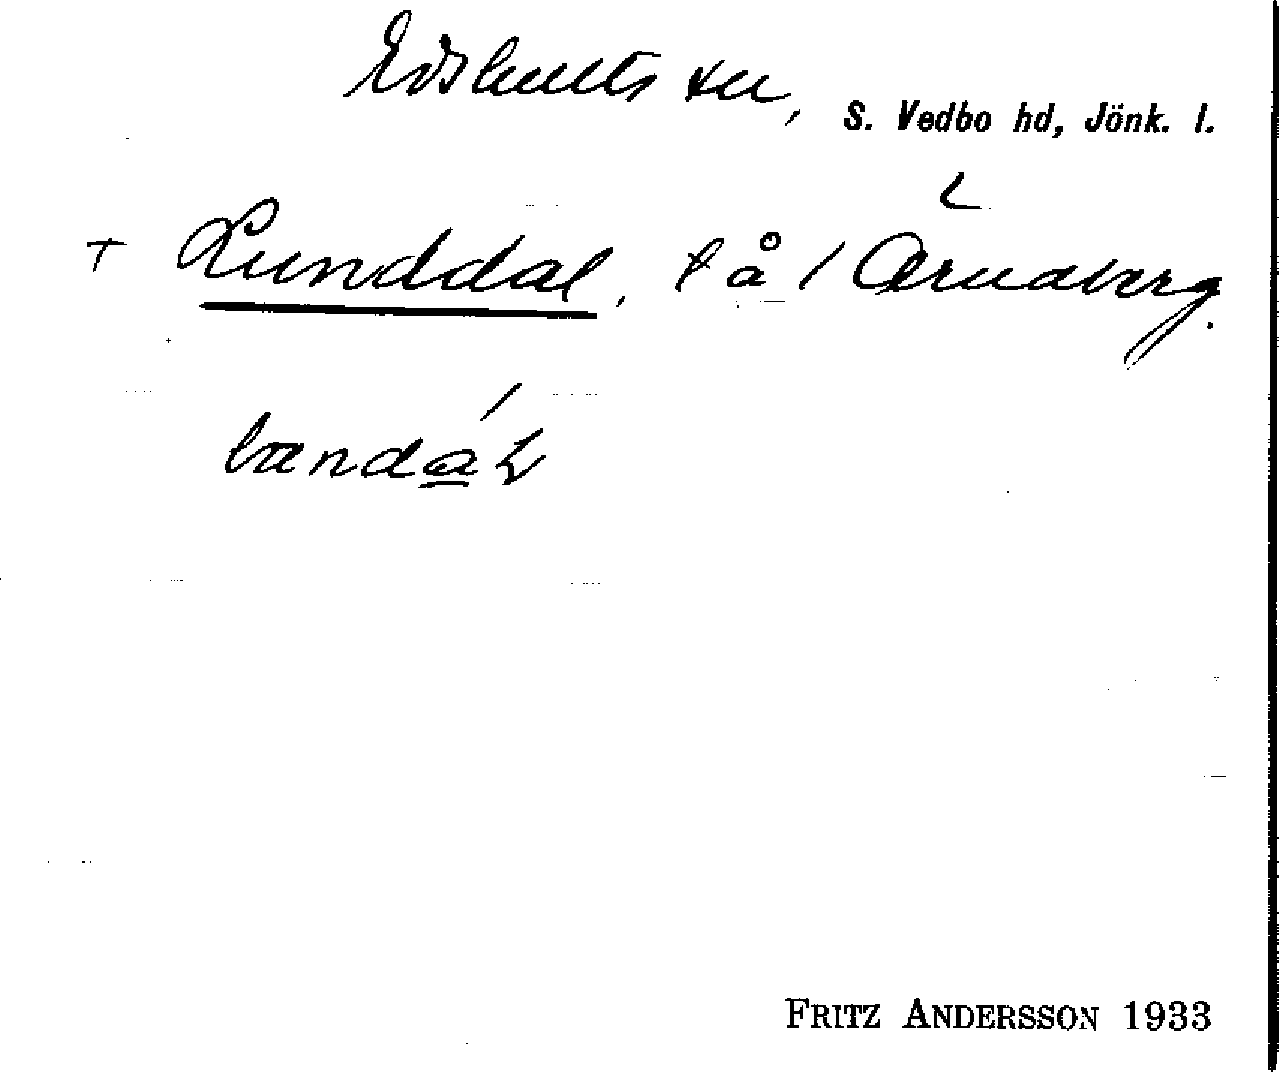 Edshults sn, S. Vedbo hd, Jönk. l.
+ Lunddal, t å 1 Ärnaberg.
FRITZ ANDERSSON 1933